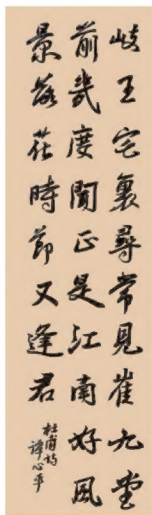 岐王宅裏尋常見崔九堂
前幾度聞正是江南好風
景落花時節又逢君
杜甫詩
譚心平